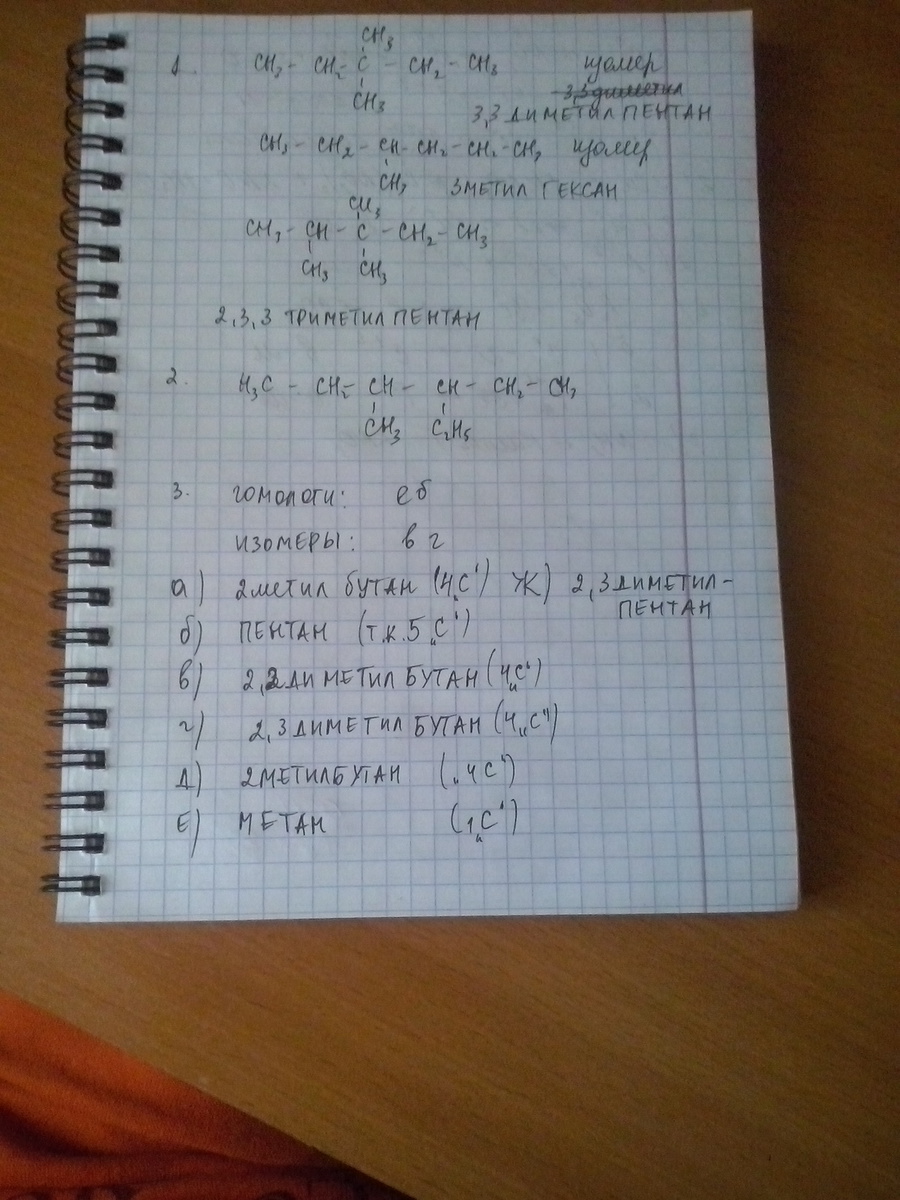 1.
CH₃
CH₃ - CH₂ - C - CH₂ - CH₃ изомер
CH₃
3,3 диметил
3,3 ДИМЕТИЛ ПЕНТАН
CH₃ - CH₂ - CH - CH₂ - CH₂ - CH₃ изомер
CH₃ 3МЕТИЛ ГЕКСАН
CH₃
CH₃ - CH - C - CH₂ - CH₃
CH₃ CH₃
2,3,3 ТРИМЕТИЛ ПЕНТАН
2. H₃C - CH₂ - CH - CH - CH₂ - CH₃
CH₃ C₂H₅
3. ГОМОЛОГИ: е б
ИЗОМЕРЫ: в г
а) 2МЕТИЛ БУТАН (4„С“) Ж) 2,3ДИМЕТИЛ-
ПЕНТАН
б) ПЕНТАН (т.к.5„С“)
в) 2,2ДИМЕТИЛ БУТАН (4„С“)
г) 2,3ДИМЕТИЛ БУТАН (4„С“)
Д) 2МЕТИЛБУТАН („4С“)
Е) МЕТАН (1„С“)